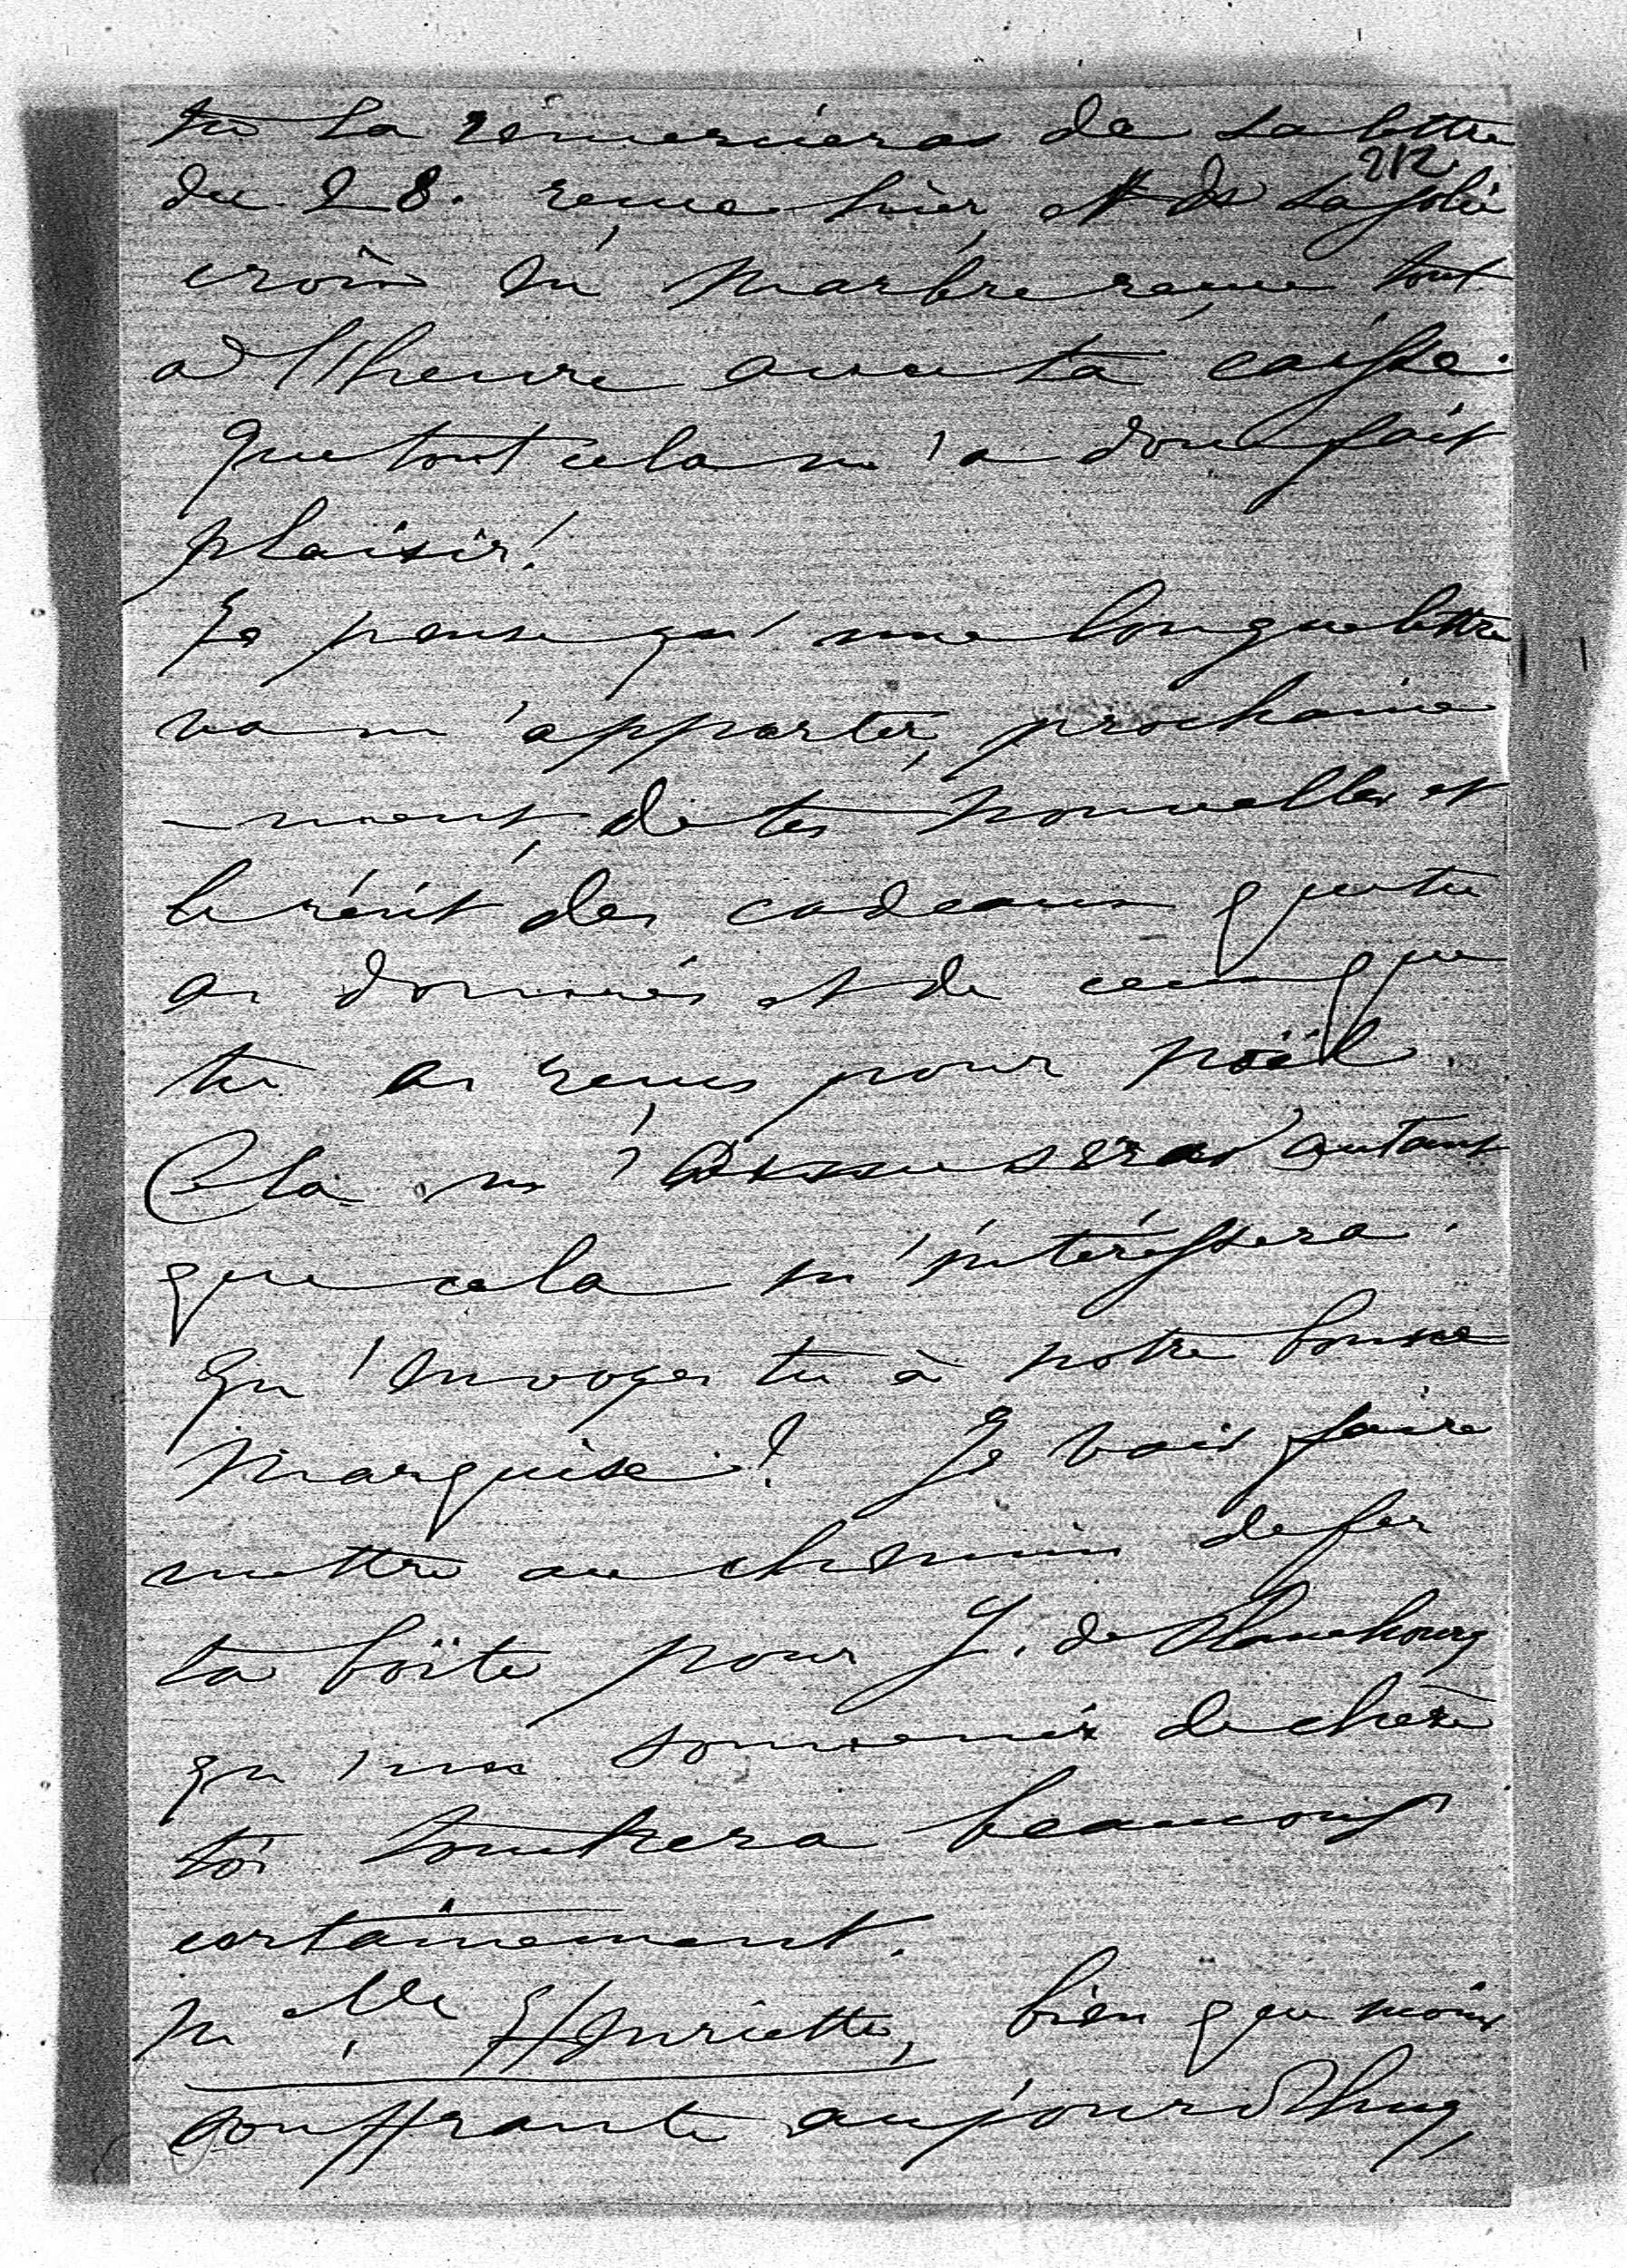 tu la remercieras de sa lettre
212
du 28. reçue hier, et de sa jolie
croix en marbre reçue tout
a l'heure avec ta caisse.
Que tout cela m'a donc fait
plaisir!
Je pense qu'une longue lettre
va m'apporter, prochaine
-ment, de tes nouvelles et
le récit des cadeaux que tu
as donnés et de ceux que
tu as reçus pour noël.
Cela m'amusera autant
que cela m'intéressera.
Qu'envoyes tu à notre bonne
Marquise? Je vais faire
mettre au chemin de fer
ta boïte pour J. de
qu'un souvenir de chère
toi touchera beaucoup
certainement.
M. elle Henriette, bien que moins
souffrante aujourd'huy,